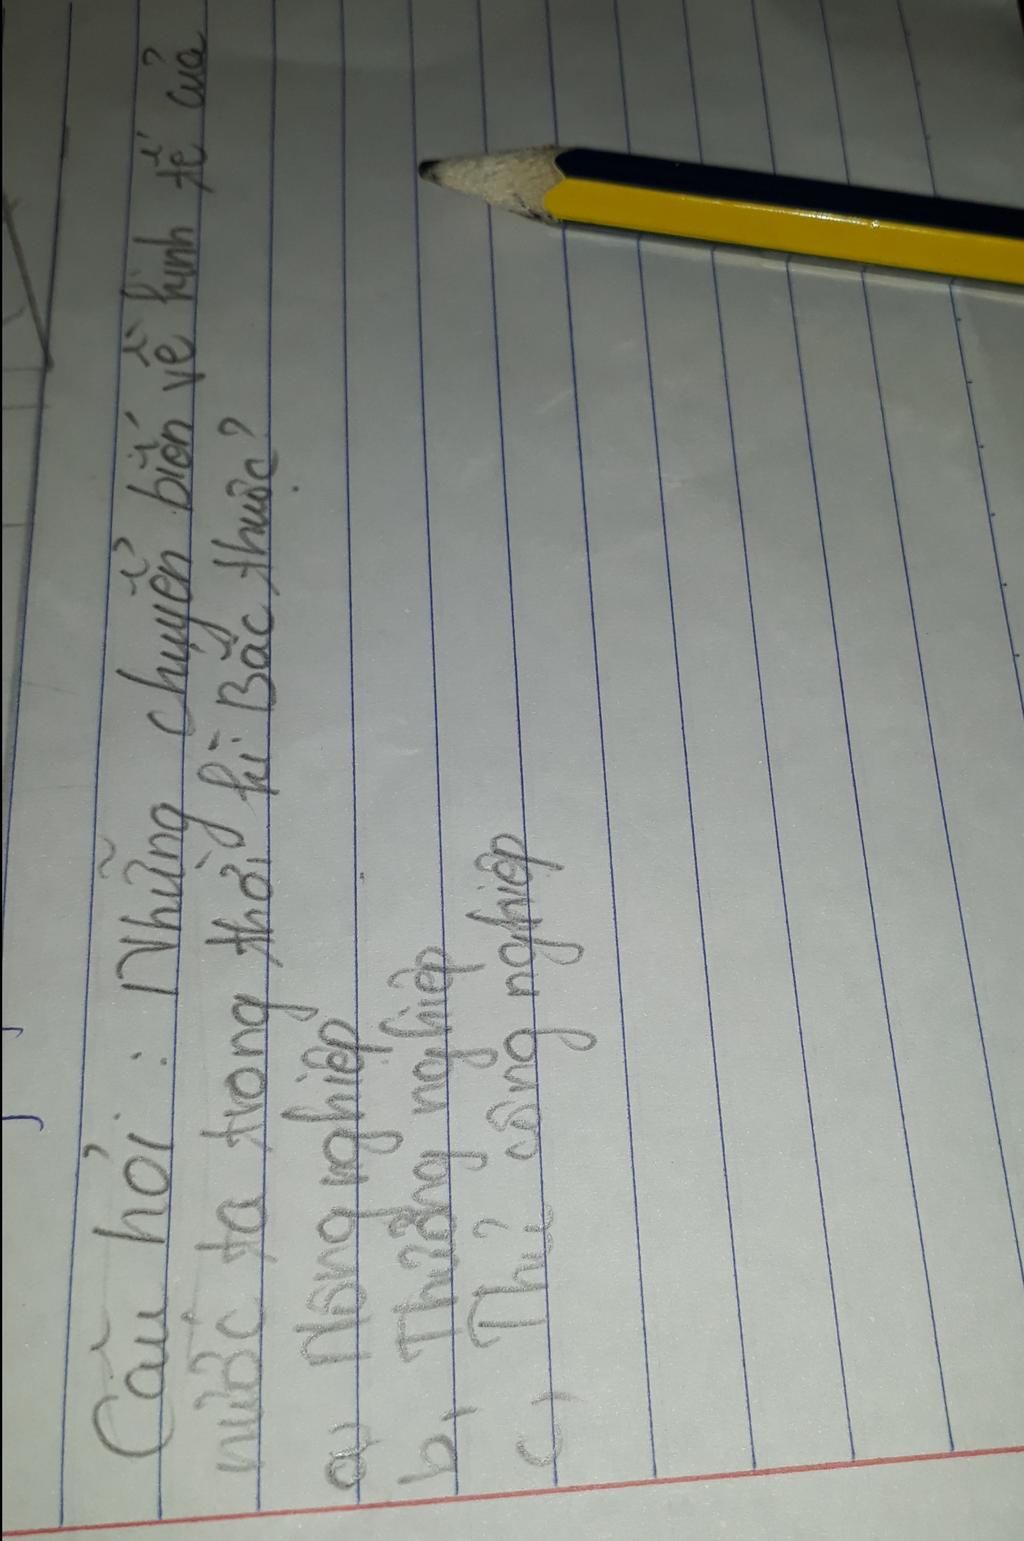 Câu hỏi : Những chuyển biến về kinh tế của
nước ta trong thời kì Bắc thuộc?
a, Nông nghiệp
b, Thương nghiệp
c, Thủ công nghiệp